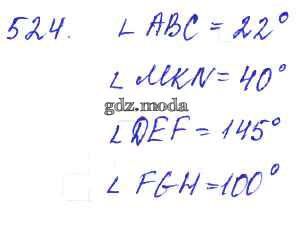 524. ∠ ABC = 22°
∠ MKN = 40°
gdz.moda
∠ DEF = 145°
∠ FGH = 100°